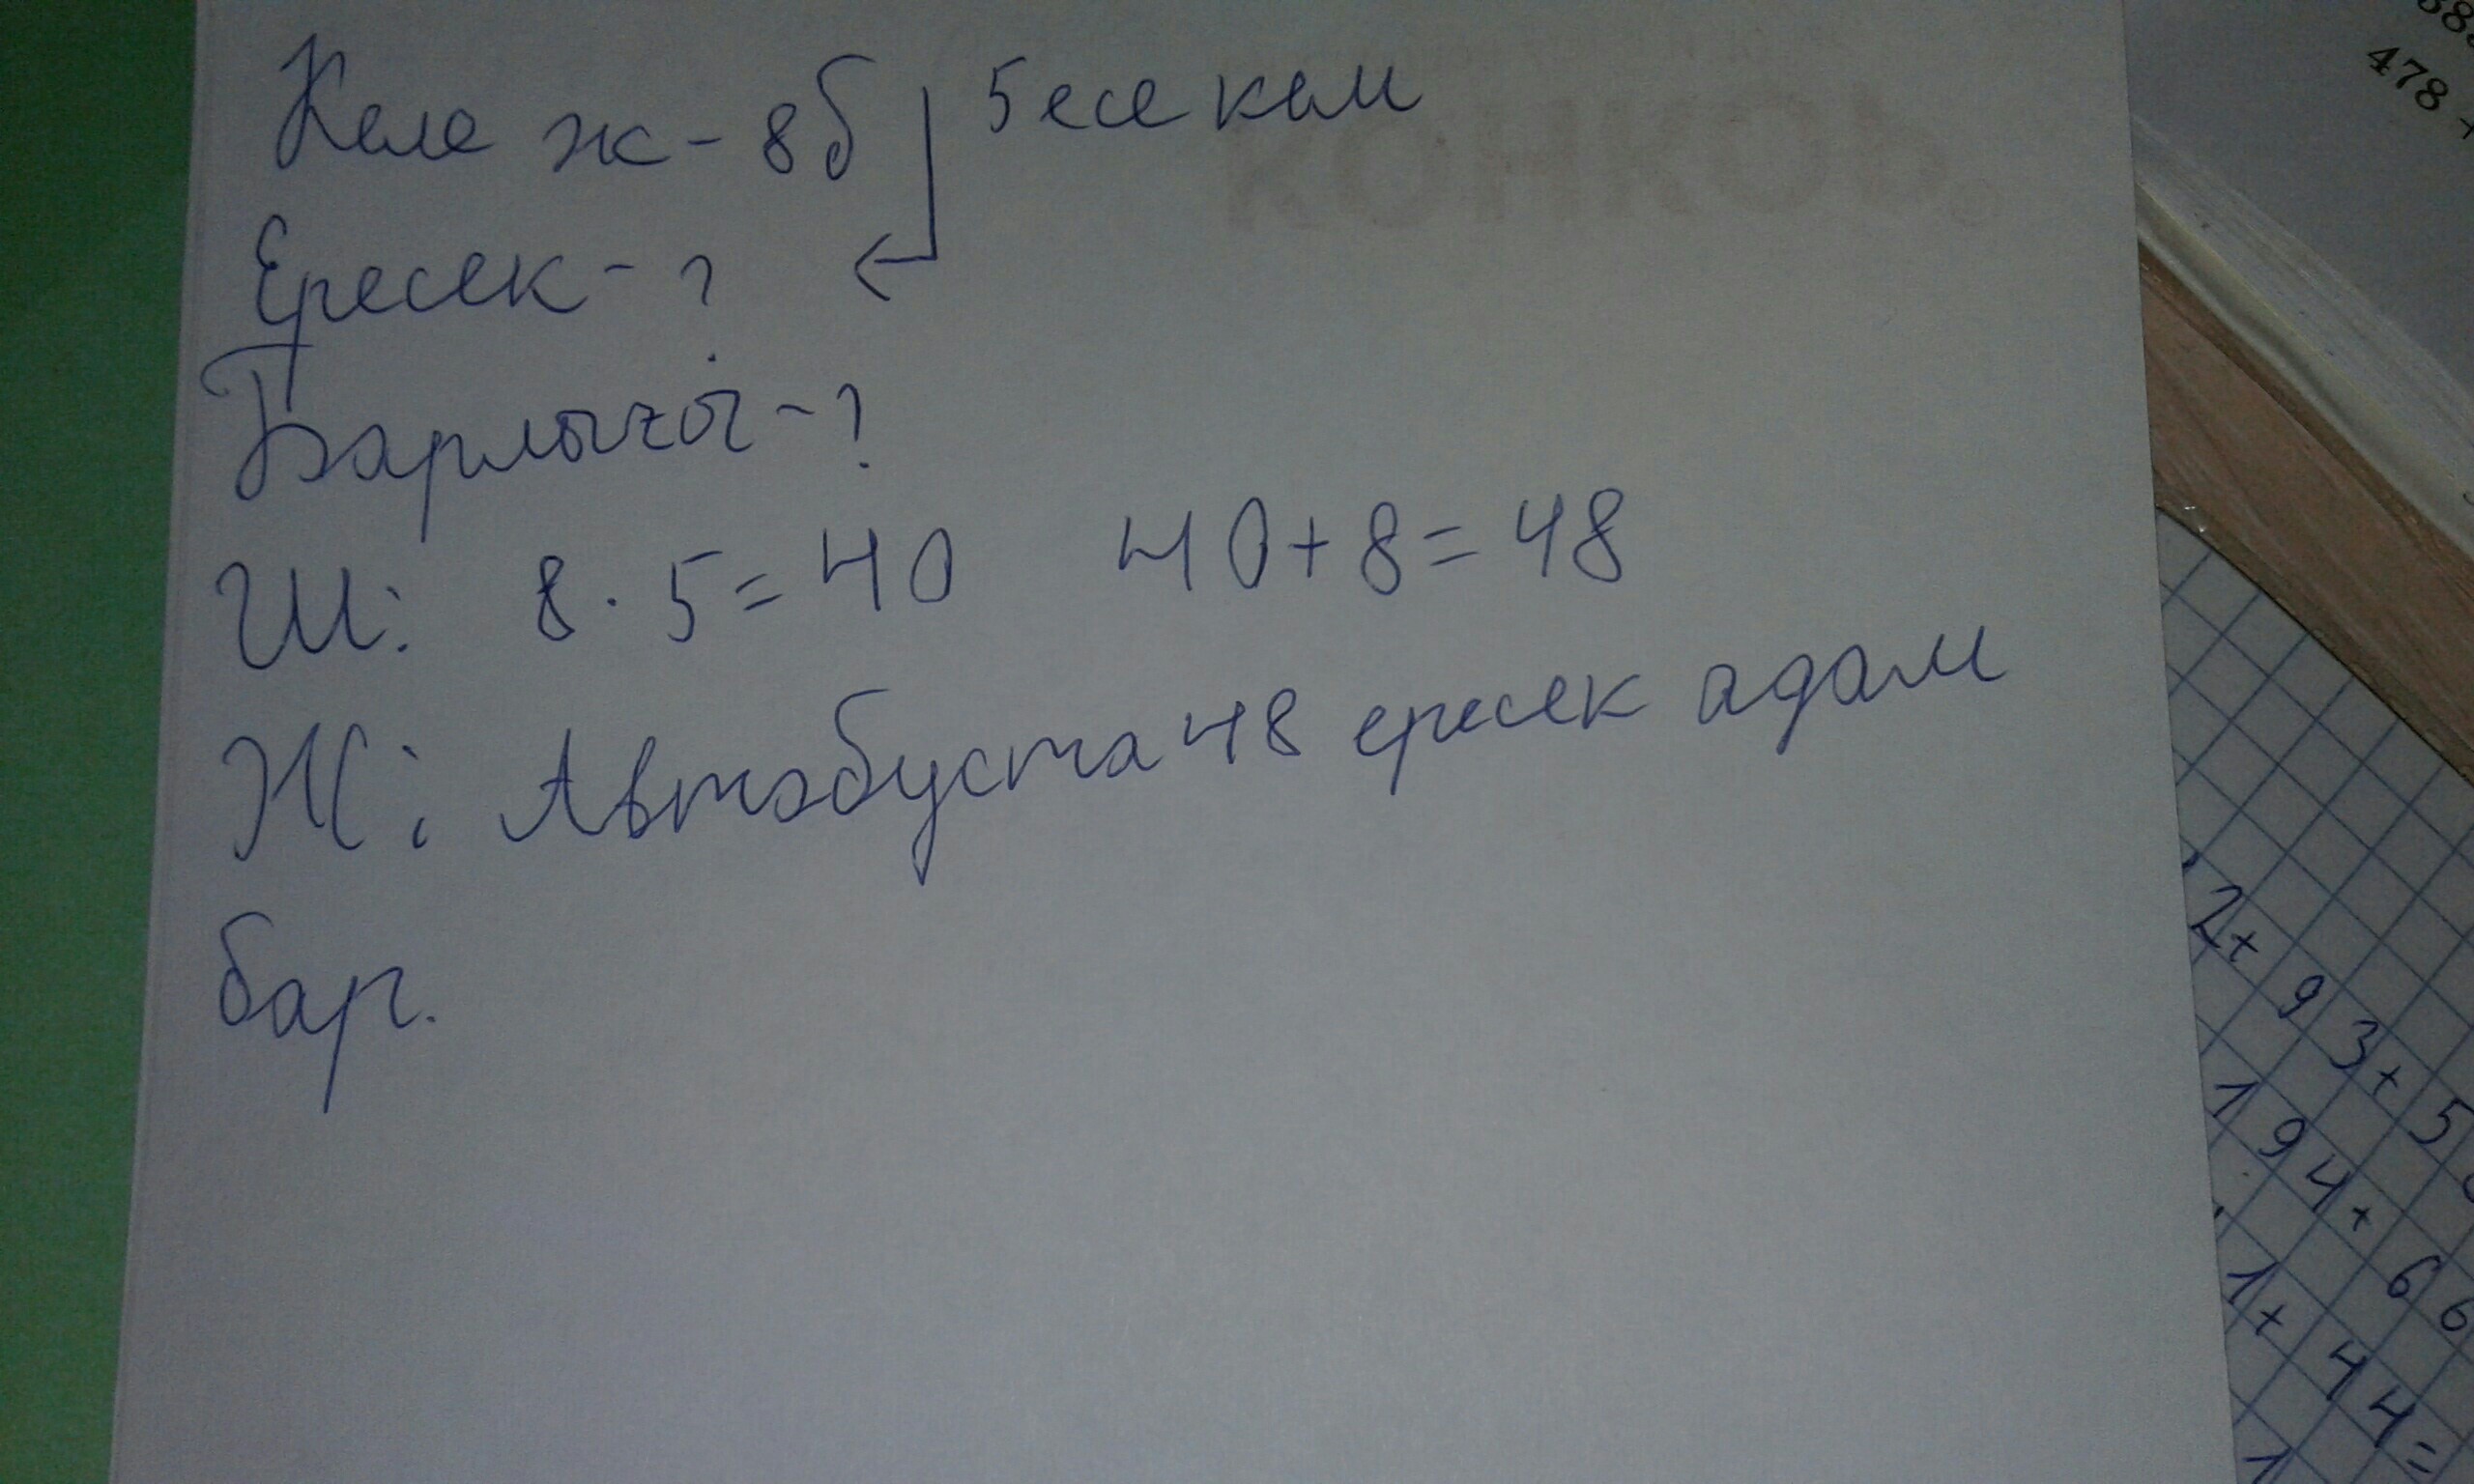 Келе ж - 8б 5 есе кем
Ересек - ?
Барлығы - ?
Ш: 8 · 5 = 40 40 + 8 = 48
Ж: Автобуста 48 ересек адам
бар.
478 +
2+ 9 3+ 5
1 9 4+ 6 6
1+ 4 4 =
1